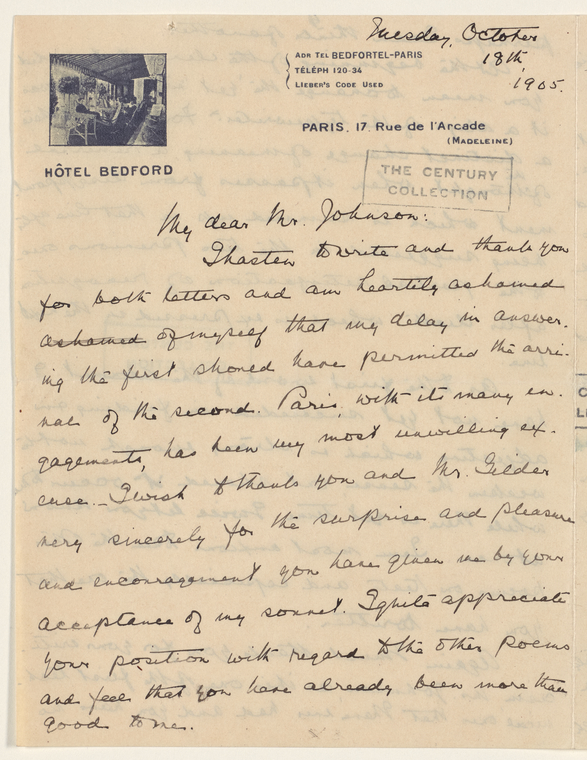 Tuesday, October
18th,
1905.
ADR TEL BEDFORTEL-PARIS
TÉLÉPH 120-34
LIEBER'S CODE USED
PARIS, 17, Rue de l'Arcade
(MADELEINE)
HÔTEL BEDFORD
THE CENTURY
COLLECTION
My dear Mr. Johnson:
I hasten to write and thank you
for both letters and am heartily ashamed
ashamed of myself that my delay in answer-
ing the first should have permitted the arri-
val of the second. Paris, with its many en-
gagements, has been my most unwilling ex-
cuse.— I wish to thank you and Mr. Gilder
very sincerely for the surprise and pleasure
and encouragement you have given me by your
acceptance of my sonnet. I quite appreciate
your position with regard to the other poems
and feel that you have already been more than
good to me.